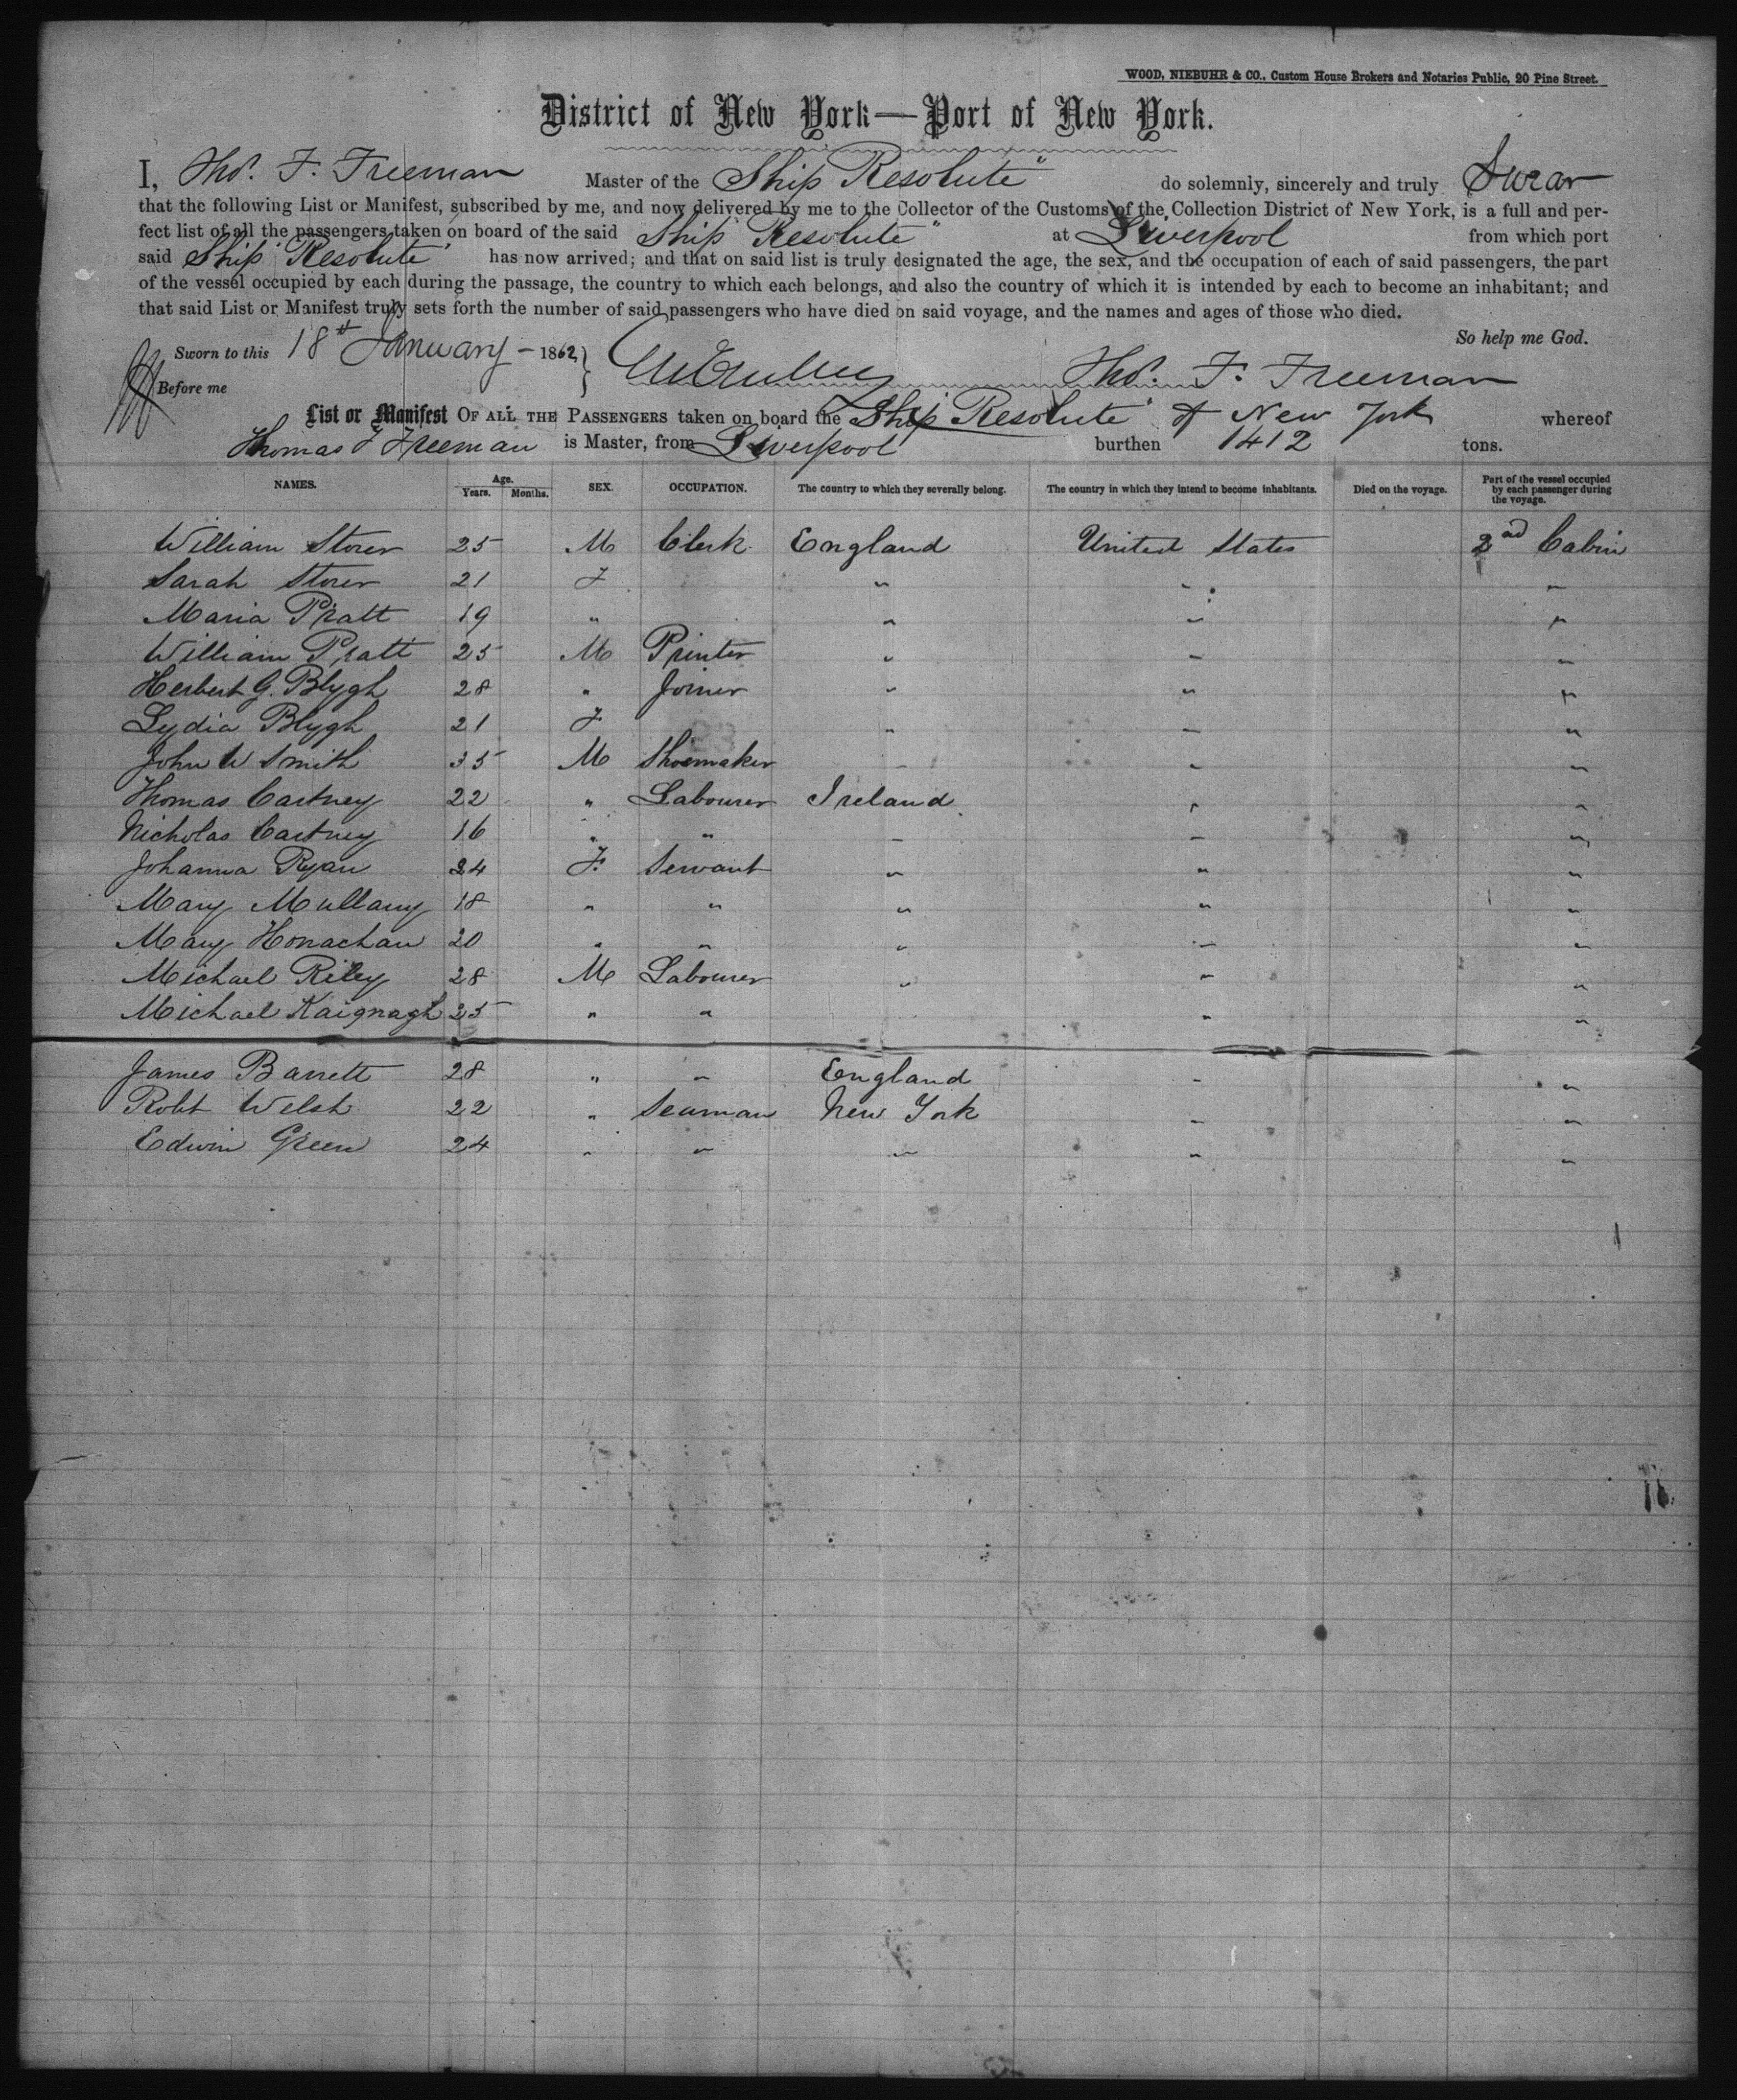 WOOD, NIEBUHR & CO., Custom House Brokers and Notaries Public, 20 Pine Street.
District of New York—Port of New York.
I, Thos. F. Freeman Master of the Ship "Resolute" do solemnly, sincerely and truly Swear
that the following List or Manifest, subscribed by me, and now delivered by me to the Collector of the Customs of the Collection District of New York, is a full and per-
fect list of all the passengers taken on board of the said Ship "Resolute" at Liverpool from which port
said Ship "Resolute" has now arrived; and that on said list is truly designated the age, the sex, and the occupation of each of said passengers, the part
of the vessel occupied by each during the passage, the country to which each belongs, and also the country of which it is intended by each to become an inhabitant; and
that said List or Manifest truly sets forth the number of said passengers who have died on said voyage, and the names and ages of those who died.
So help me God.
Sworn to this 18th January - 1862
Before me Thos. F. Freeman
List or Manifest OF ALL THE PASSENGERS taken on board the Ship "Resolute" of New York whereof
Thomas F Freeman is Master, from Liverpool burthen 1412 tons.
NAMES. Age. Years. Months. SEX. OCCUPATION. The country to which they severally belong. The country in which they intend to become inhabitants. Died on the voyage. Part of the vessel occupied by each passenger during the voyage.
William Storer 25 M Clerk England United States 2nd Cabin
Sarah Storer 21 F " " "
Maria Pratt 19 " " " "
William Pratt 25 M Printer " " "
Herbert G. Blygh 28 " Joiner " " "
Lydia Blygh 21 F " " "
John W Smith 35 M Shoemaker " " "
Thomas Cartney 22 " Labourer Ireland " "
Nicholas Cartney 16 " " " " "
Johanna Ryan 24 F. Servant " " "
Mary Mullany 18 " " " " "
Mary Honachan 20 " " " " "
Michael Riley 28 M Labourer " " "
Michael Kaignagh 25 " " " "
James Barrett 28 " " England " "
Robt Welsh 22 " Seaman New York " "
Edwin Green 24 " " " " "